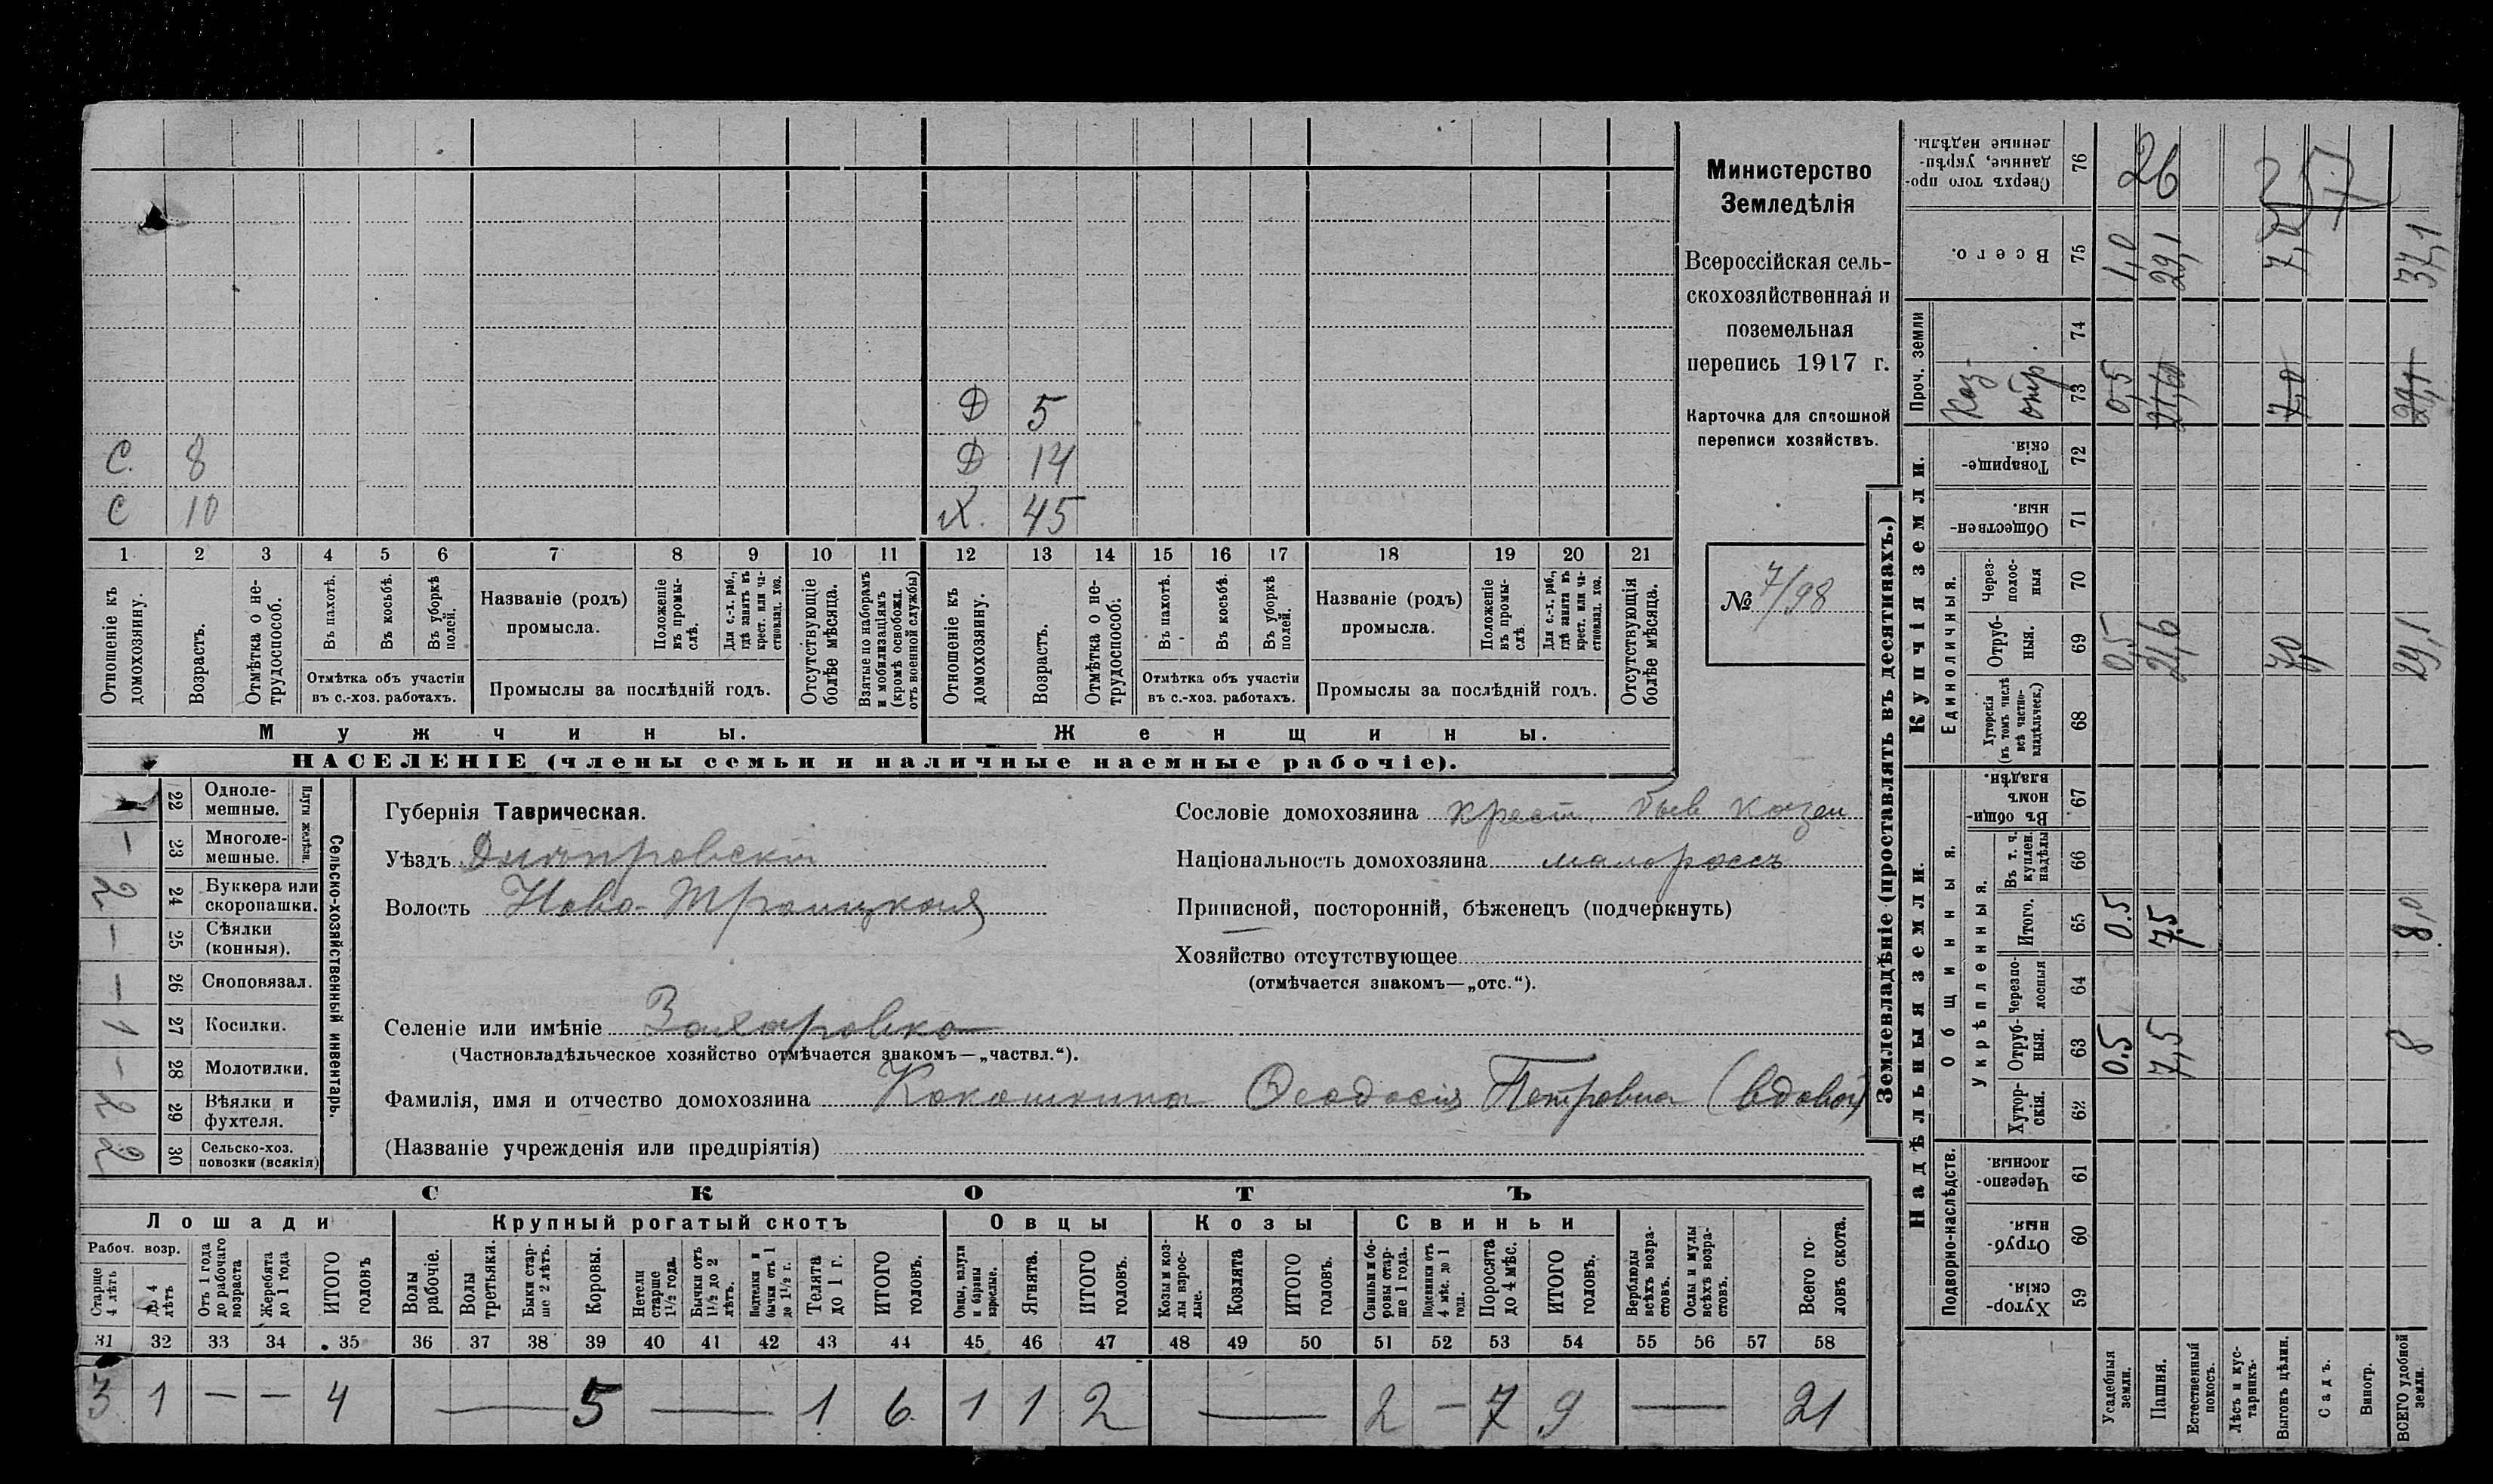 Министерство
Земледѣлія
Всероссійская сель-
скохозяйственная и
поземельная
перепись 1917 г.
Карточка для сплошной
переписи хозяйствъ.
№ 7/98
Д 5
С. 8 Д 14
С 10 Х. 45
1 2 3 4 5 6 7 8 9 10 11 12 13 14 15 16 17 18 19 20 21
Отношеніе къ домохозяину.
Возрастъ.
Отмѣтка о не-
трудоспособ.
Въ пахотѣ.
Въ косьбѣ.
Въ уборкѣ полей.
Отмѣтка объ участіи
въ с.-хоз. работахъ.
Названіе (родъ)
промысла.
Положеніе
въ промы-
слѣ.
Для с.-х. раб.,
гдѣ занятъ въ
крест. или ча-
стновлад. хоз.
Промыслы за послѣдній годъ.
Отсутствующіе
болѣе мѣсяца.
Взятые по наборамъ
и мобилизаціямъ
(кромѣ освобожд.
отъ военной службы)
Отношеніе къ
домохозяину.
Возрастъ.
Отмѣтка о не-
трудоспособ.
Въ пахотѣ.
Въ косьбѣ.
Въ уборкѣ
полей.
Отмѣтка объ участіи
въ с.-хоз. работахъ.
Названіе (родъ)
промысла.
Положеніе
въ промы-
слѣ.
Для с.-х. раб.,
гдѣ занята въ
крест. или ча-
стновлад. хоз.
Промыслы за послѣдній годъ.
Отсутствующія
болѣе мѣсяца.
Мужчины. Женщины.
НАСЕЛЕНІЕ (члены семьи и наличные наемные рабочіе).
Сельско-хозяйственный инвентарь.
Плуги желѣзн.
22 Одноле-
мешные.
— 23 Многоле-
мешные.
2 24 Буккера или
скоропашки.
— 25 Сѣялки
(конныя).
— 26 Сноповязал.
1 27 Косилки.
— 28 Молотилки.
2 29 Вѣялки и
фухтеля.
2 30 Сельско-хоз.
повозки (всякія)
Губернія Таврическая.
Уѣздъ Днѣпровскій
Волость Ново-Троицкая
Сословіе домохозяина крест. быв казен
Національность домохозяина малороссъ
Приписной, посторонній, бѣженецъ (подчеркнуть)
Хозяйство отсутствующее
(отмѣчается знакомъ—„отс.“).
Селеніе или имѣніе Захаровка
(Частновладѣльческое хозяйство отмѣчается знакомъ—„частвл.“).
Фамилія, имя и отчество домохозяина Кокошкина Ѳеодосія Петровна (вдова)
(Названіе учрежденія или предпріятія)
СКОТЪ
Лошади Крупный рогатый скотъ Овцы Козы Свиньи
Рабоч. возр.
Старше
4 лѣтъ
До 4
лѣтъ
Отъ 1 года
до рабочаго
возраста
Жеребята
до 1 года
ИТОГО
головъ
Волы
рабочіе.
Волы
третьяки.
Быки стар-
ше 2 лѣтъ.
Коровы.
Нетели
старше
1½ года.
Бычки отъ
1½ до 2
лѣтъ.
Подтелки и
бычки отъ 1
до 1½ г.
Телята
до 1 г.
ИТОГО
головъ.
Овцы, валухи
и бараны
взрослые.
Ягнята.
ИТОГО
головъ.
Козы и коз-
лы взрос-
лые.
Козлята
ИТОГО
головъ.
Свиньи и бо-
ровы стар-
ше 1 года.
Подсвинки отъ
4 мѣс. до 1
года.
Поросята
до 4 мѣс.
ИТОГО
головъ.
Верблюды
всѣхъ возра-
стовъ.
Ослы и мулы
всѣхъ возра-
стовъ.
Всего го-
ловъ скота.
31 32 33 34 35 36 37 38 39 40 41 42 43 44 45 46 47 48 49 50 51 52 53 54 55 56 57 58
3 1 — — 4 — 5 — 1 6 1 1 2 — 2 — 7 9 — 21
Землевладѣніе (проставлять въ десятинахъ.)
Надѣльныя земли.
Подворно-наслѣдств.
Хутор-
скія. 59
Отруб-
ныя. 60
Черезпо-
лосныя. 61
Общинныя.
Укрѣпленныя.
Хутор-
скія. 62
Отруб-
ныя. 63 0.5 7,5 8
Черезпо-
лосныя 64
Итого. 65 0.5 7.5 8,0
Въ т. ч.
куплен.
надѣлы 66
Въ общин-
номъ
владѣн. 67
Купчія земли.
Единоличныя.
Хуторскія
(въ томъ числѣ
всѣ частно-
владѣльческ.) 68
Отруб-
ныя. 69 0,5 21,6 7,0 29,1
Через-
полос-
ныя 70
Обществен-
ныя. 71
Товарище-
скія. 72
Проч. земли
Каз.
отр 73 0,5 21,60 7,0 29,1
74
Всего. 75 1,0 29,1 7,0 37,1
Сверхъ того про-
данные, укрѣп-
ленные надѣлы. 76 26
Усадебныя
земли.
Пашня.
Естественный
покосъ.
Лѣсъ и кус-
тарникъ.
Выгонъ цѣлин.
Садъ.
Виногр.
ВСЕГО удобной
земли.